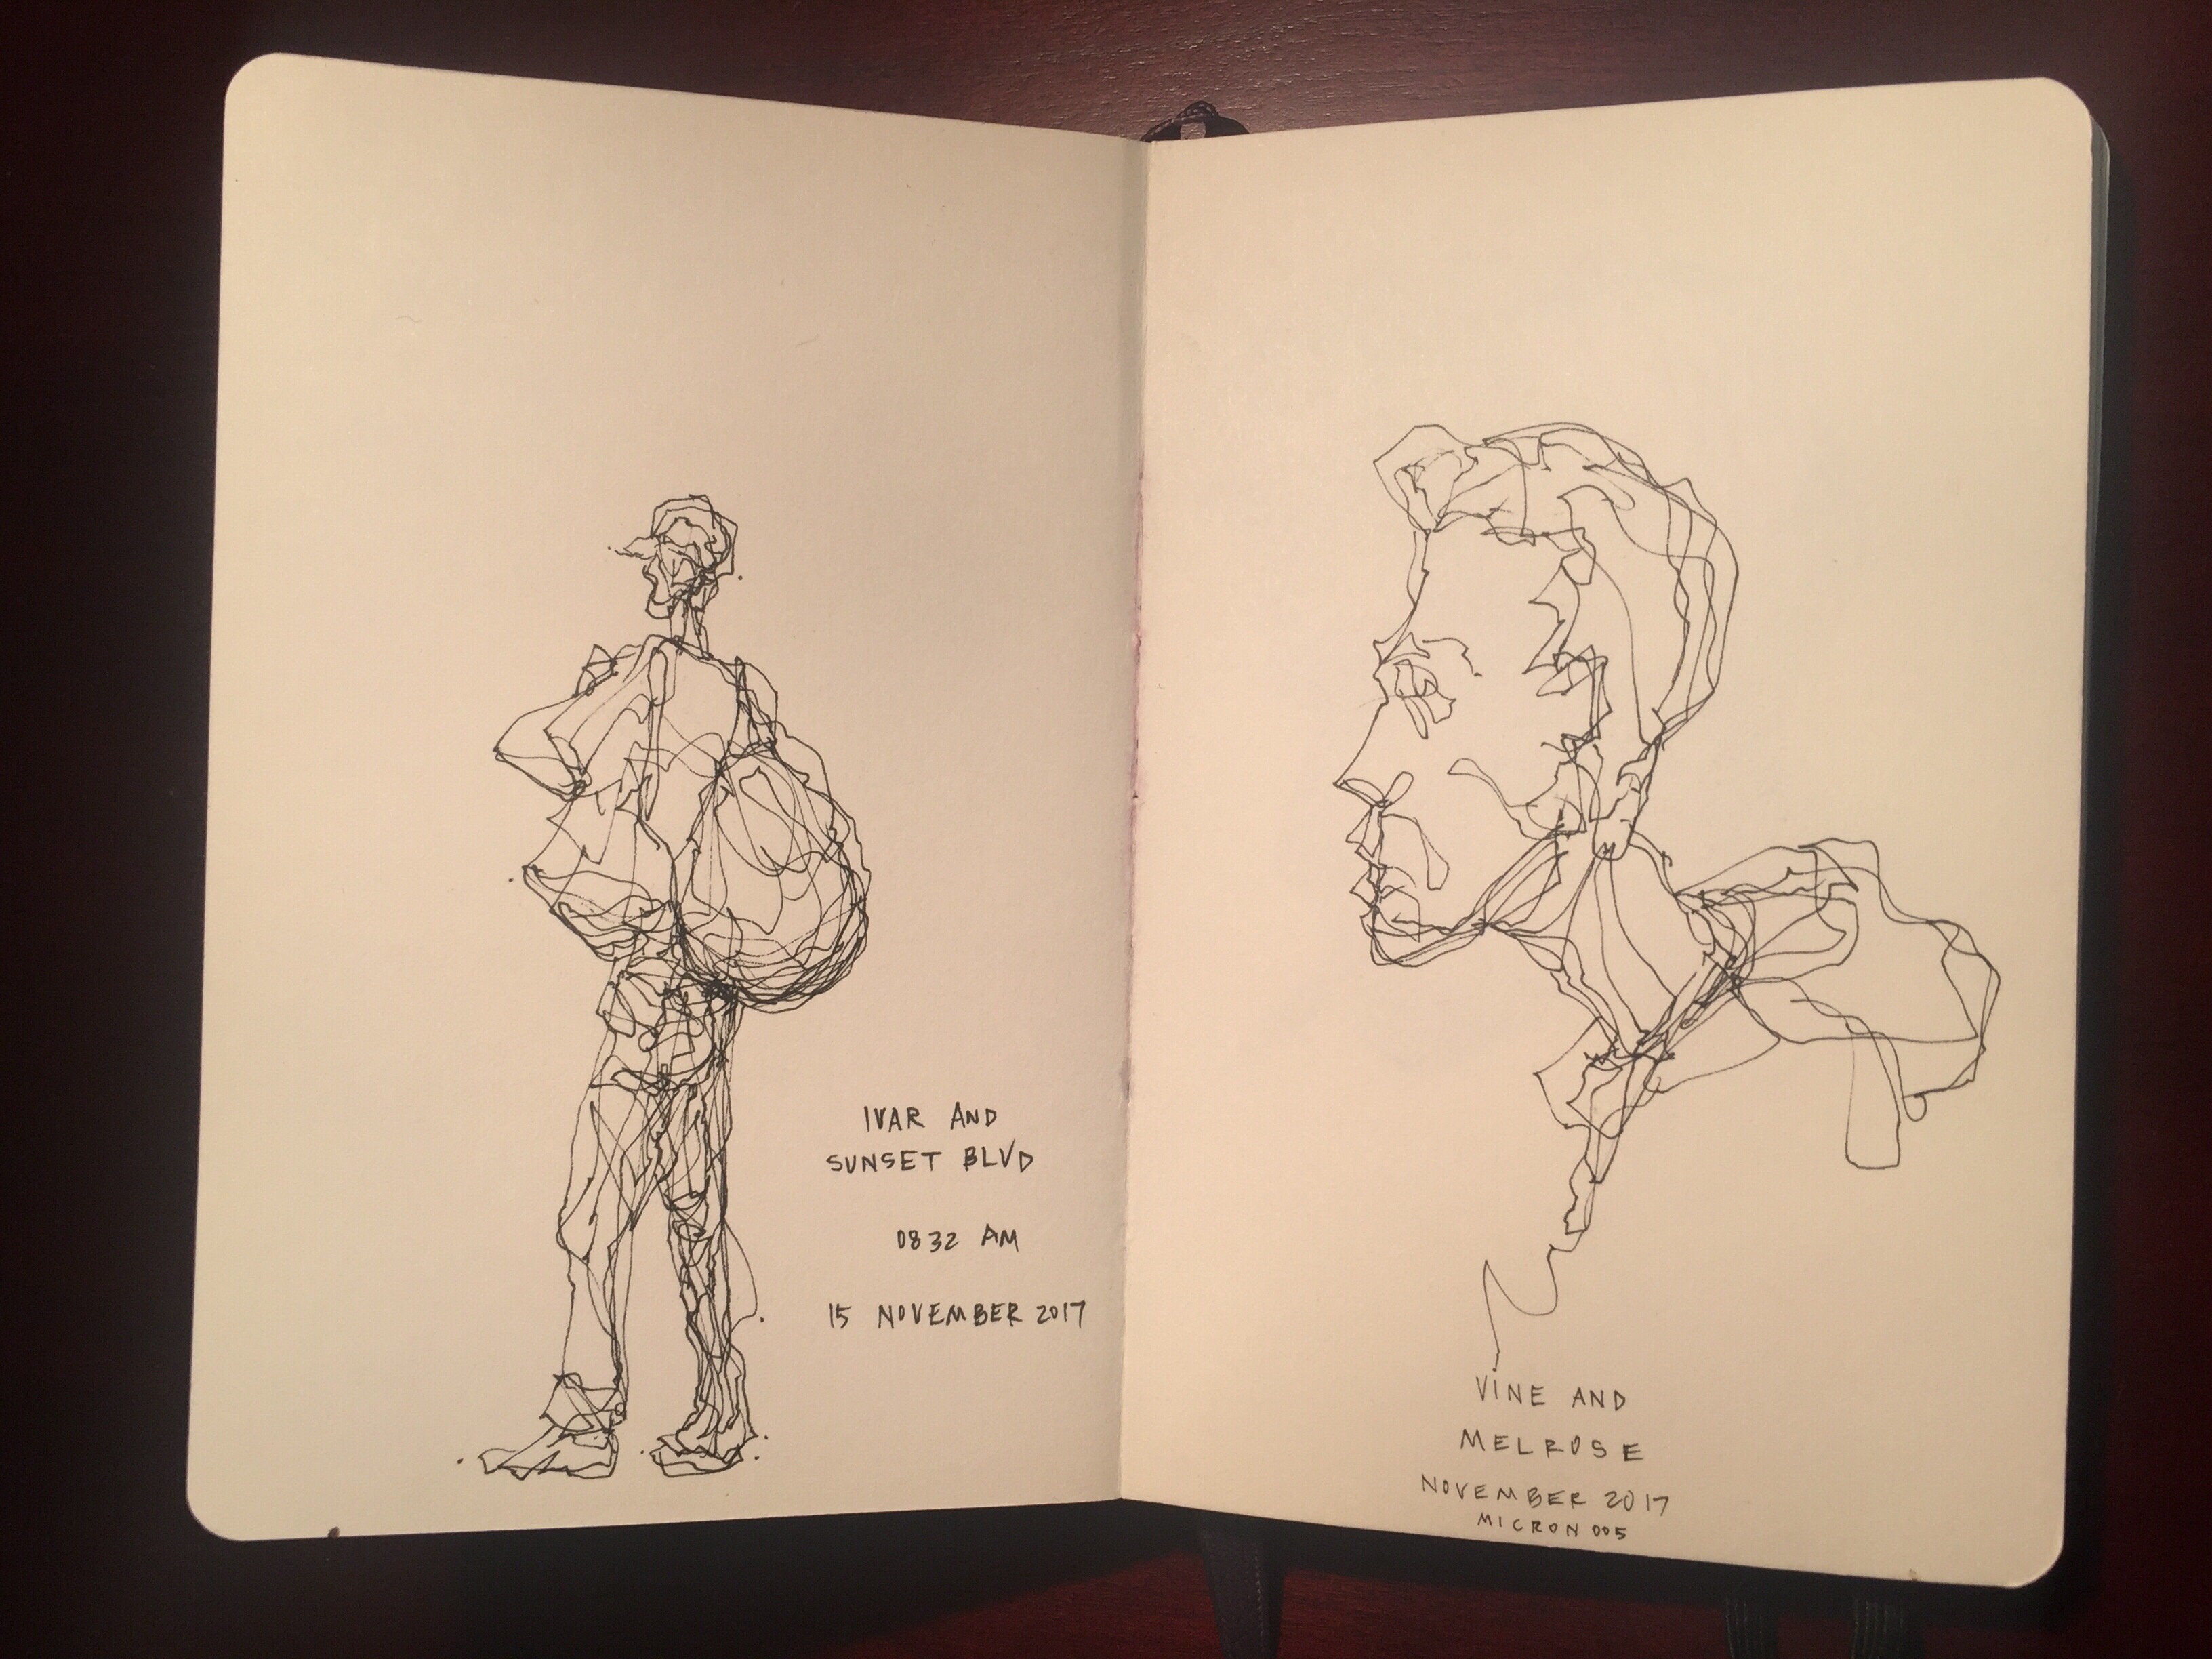 IVAR AND
SUNSET BLVD
0832 AM
15 NOVEMBER 2017
VINE AND
MELROSE
NOVEMBER 2017
MICRON 005